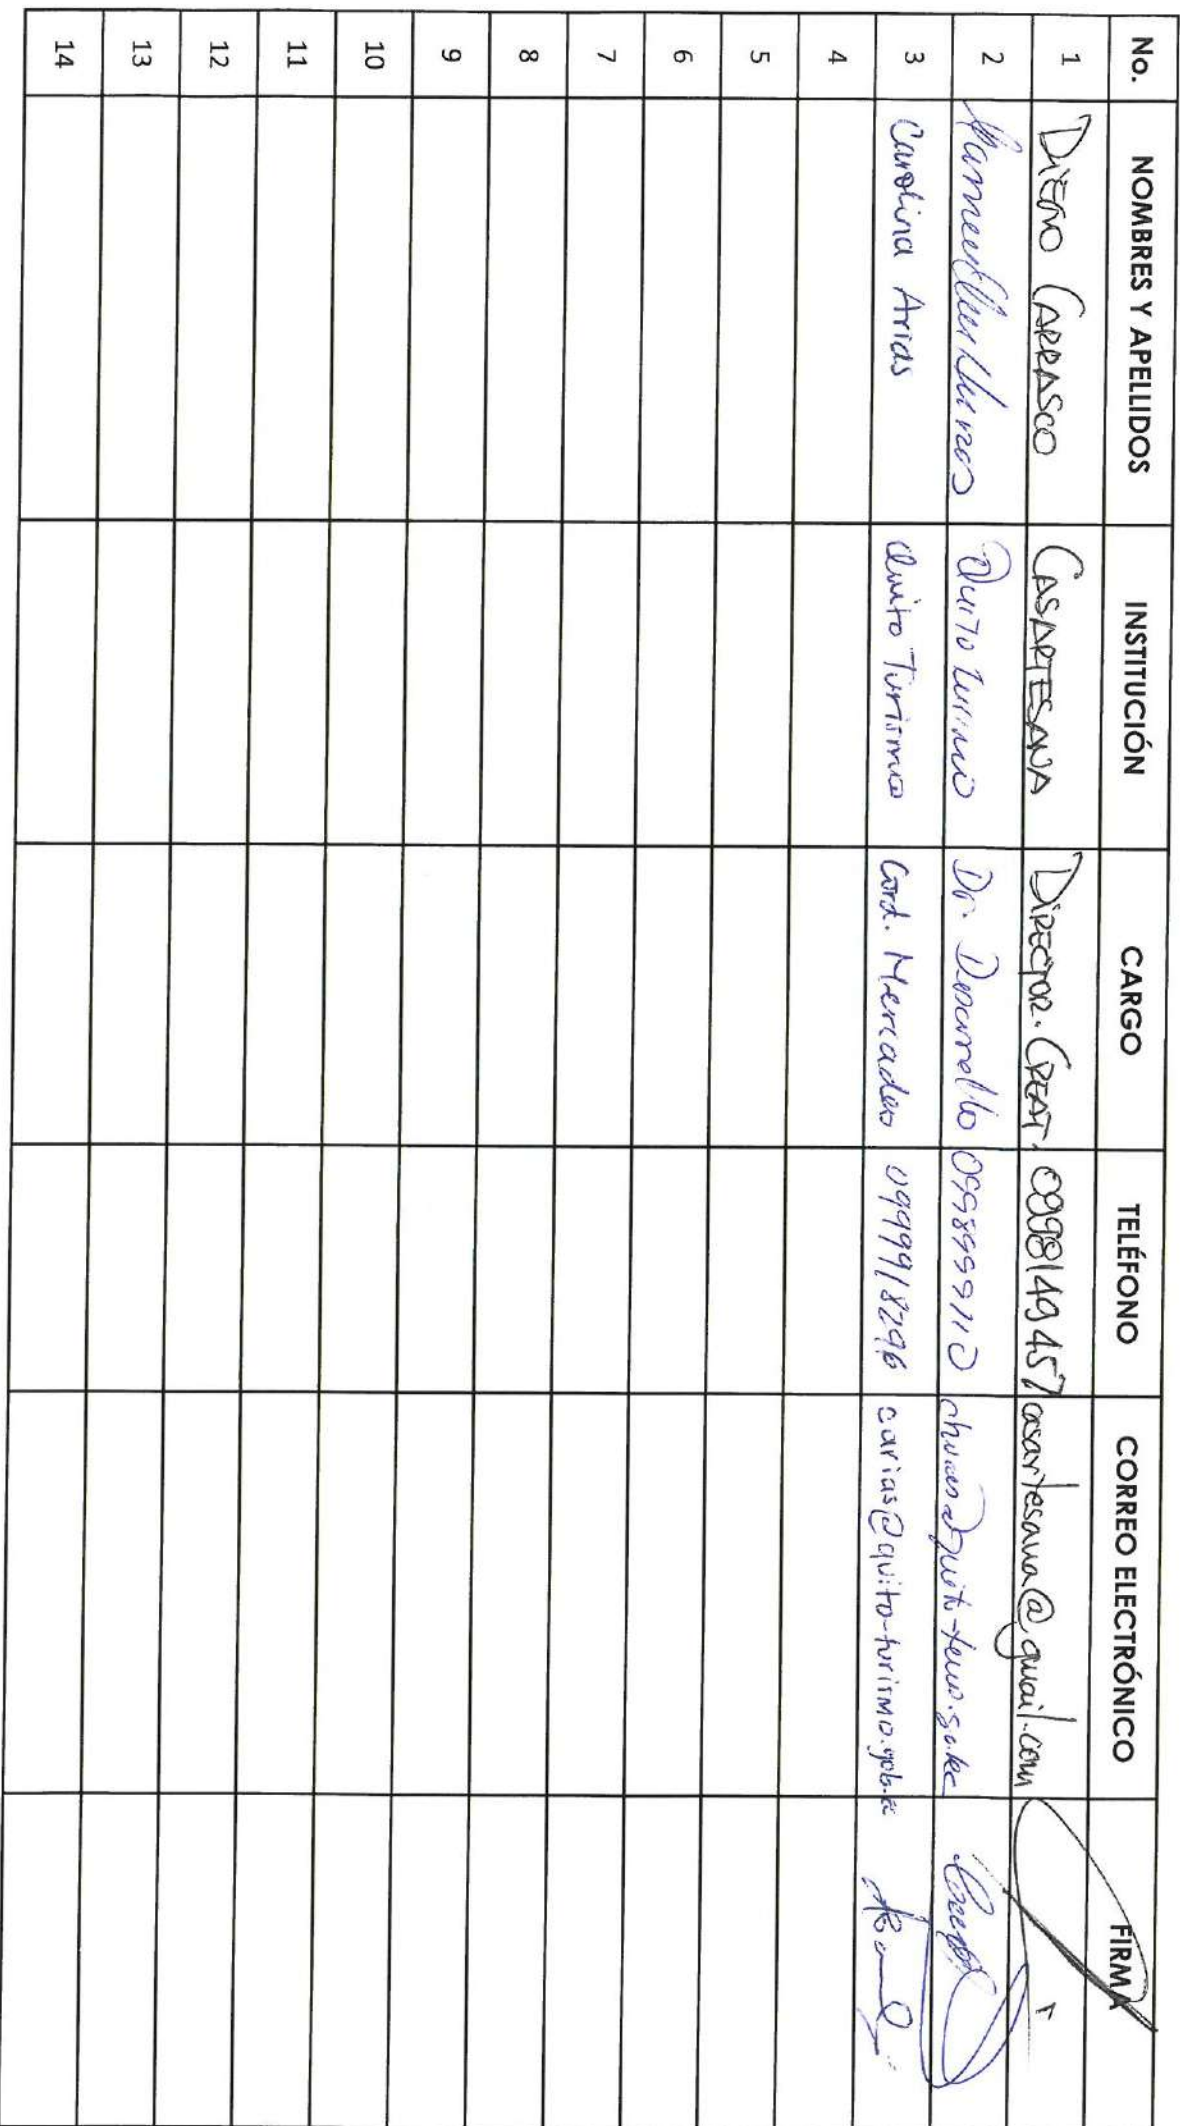 No. NOMBRES Y APELLIDOS INSTITUCIÓN CARGO TELÉFONO CORREO ELECTRÓNICO FIRMA
1 DIEGO CARRASCO CASARTESANA DIRECTOR. CREAT. 0998149457 casartesana@gmail.com
2 Quito Turismo Dir. Desarrollo 0998999110
3 Carolina Arias Quito Turismo Cord. Mercadeo 0999918296 carias@quito-turismo.gob.ec
4
5
6
7
8
9
10
11
12
13
14